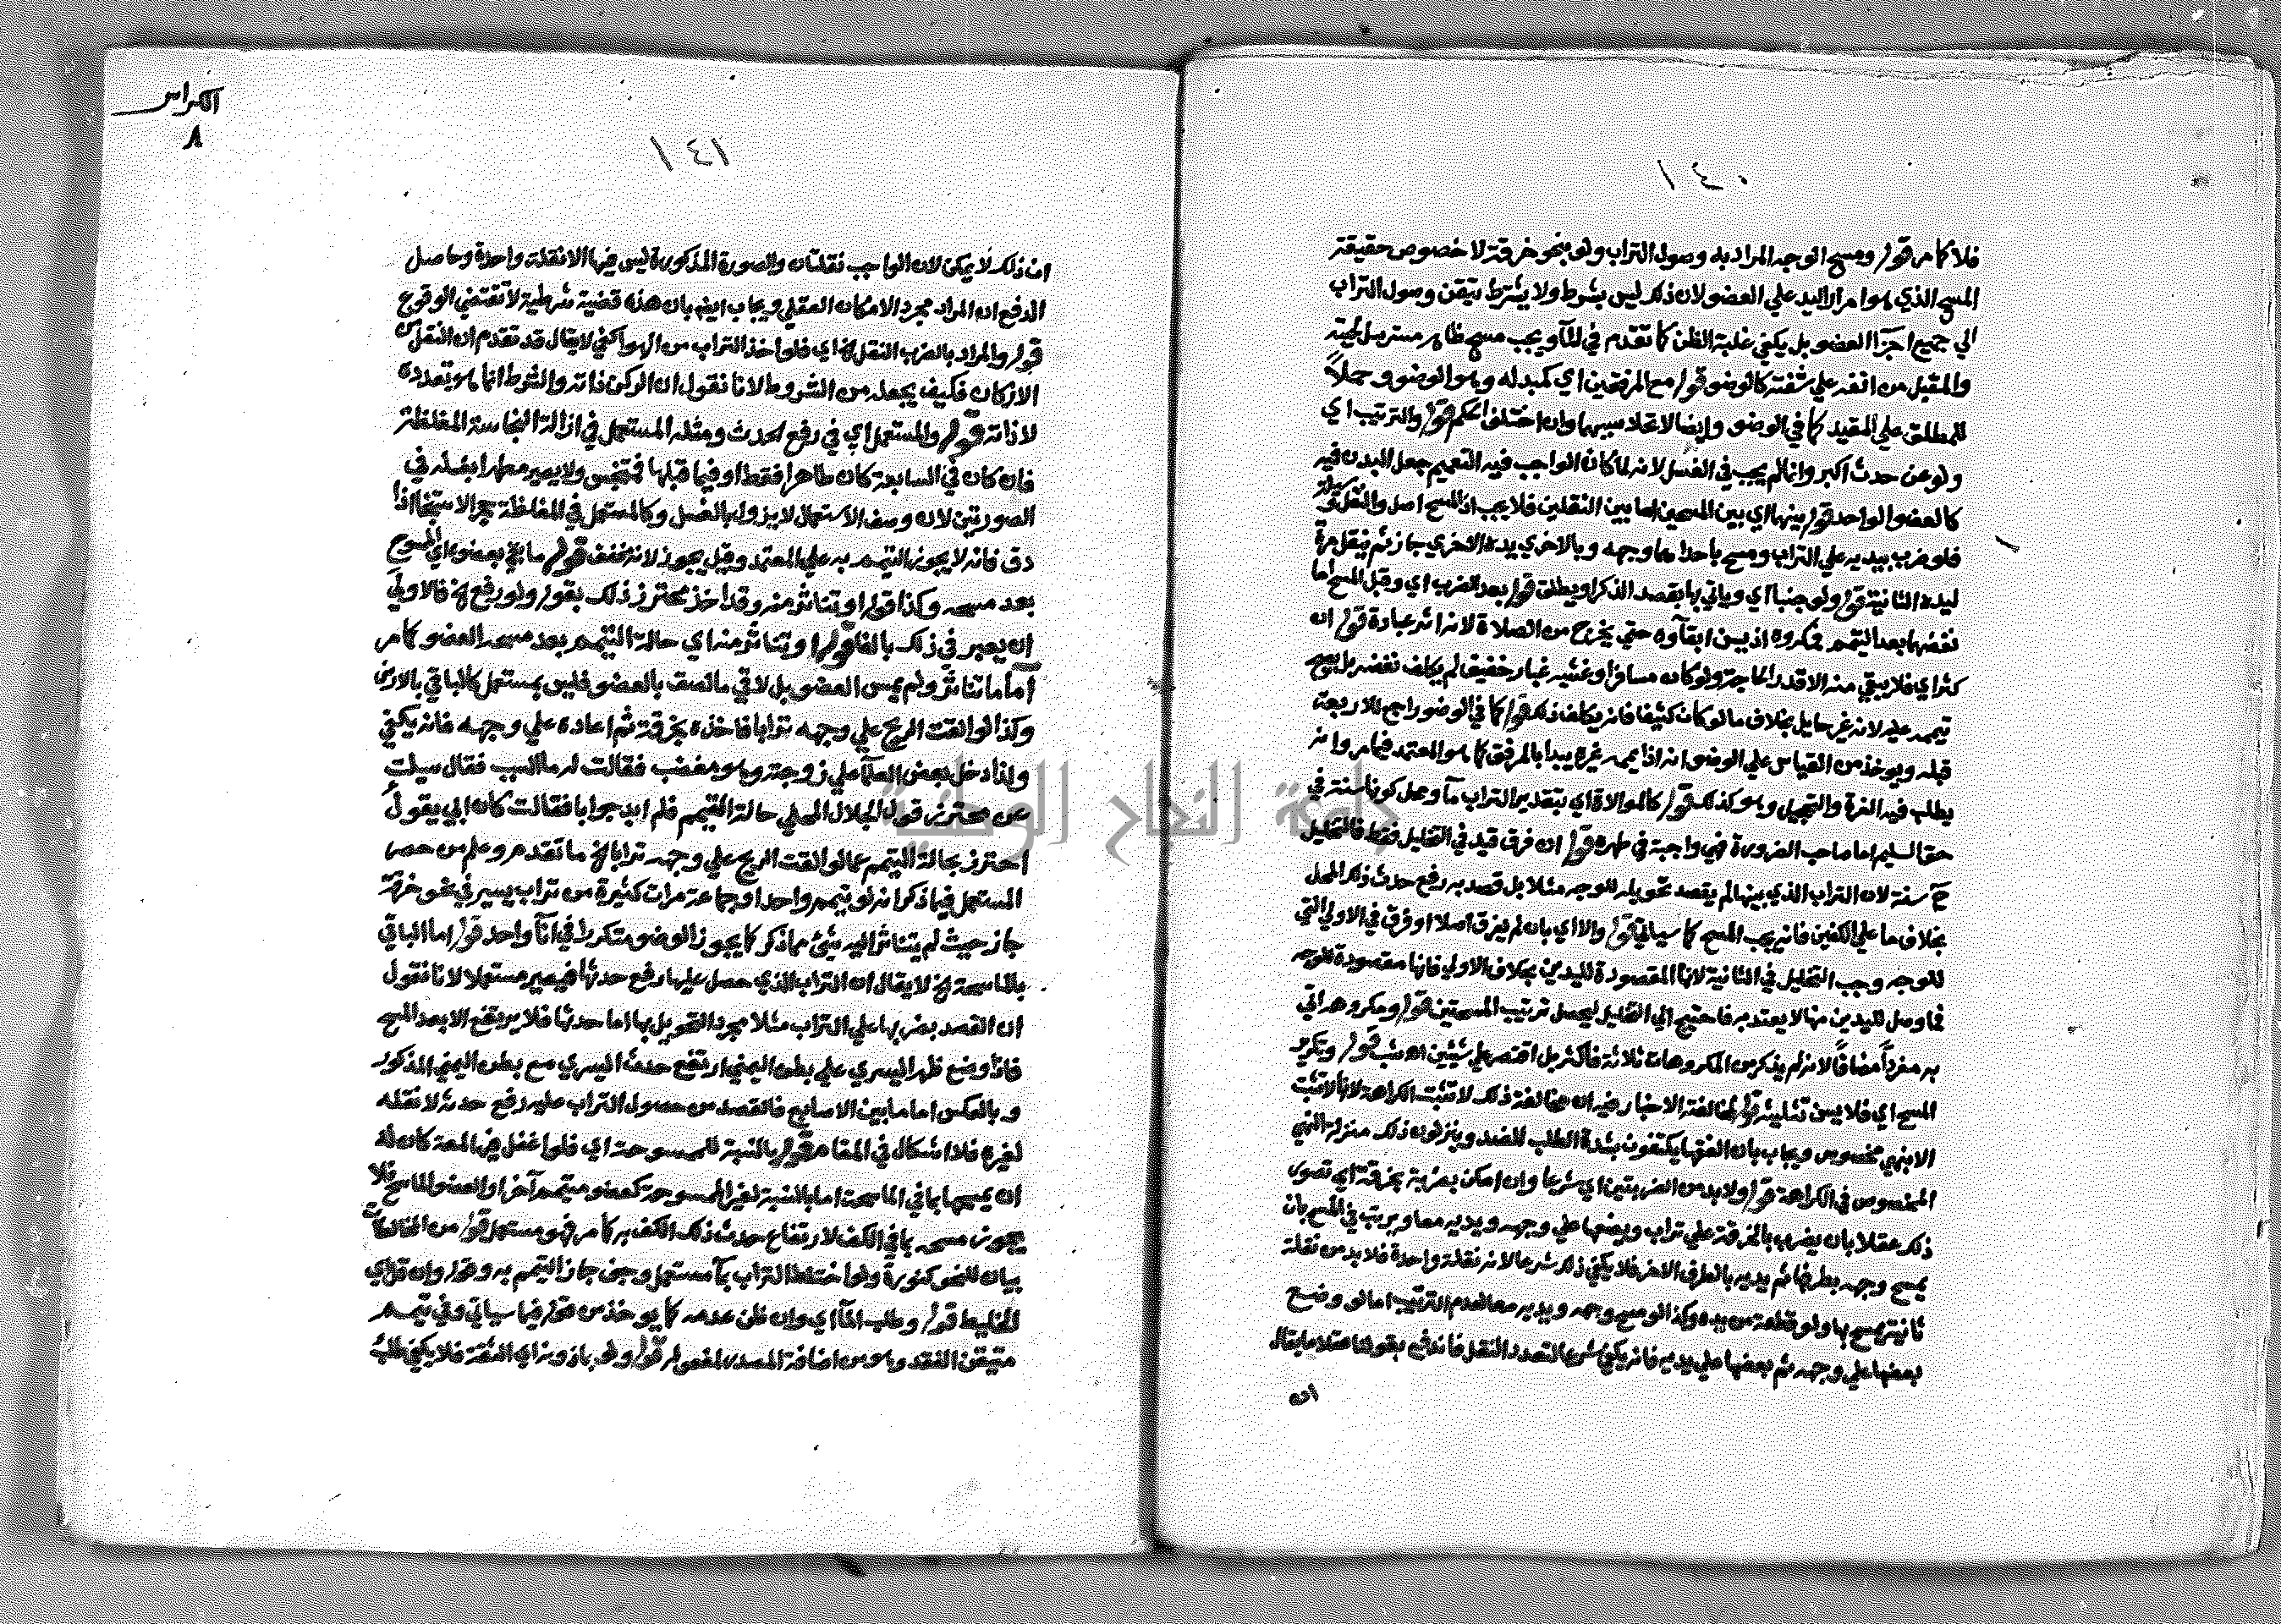 ١٤٠
فلا كما مر قوله ومسح الوجه المراد به وصول التراب ولو بنحو خرقة لا خصوص حقيقة
المسح الذي هو امرار اليد علي العضو لان ذلك ليس بشرط ولا يشترط تيقن وصول التراب
الي جميع اجزآ العضو بل يكفي غلبة الظن كما تقدم في المآ ويجب مسح ظاهر مسترسل لحيته
والمقبل من انفه علي شفته كالوضو قوله مع المرفقين اي كمبدله وهو الوضو وحملاً
للمطلق علي المقيد كما في الوضو وايضا لاتحاد سببهما وان اختلف الحكم قوله والترتيب اي
ولو عن حدث اكبر وانما لم يجب في الغسل لانه لما كان الواجب فيه التعميم جعل البدن فيه
كالعضو الواحد قوله بينهما اي بين المسحين اما بين النقلين فلا يجب اذ المسح اصل والنقل وسيلة
فلو ضرب بيديه علي التراب ومسح باحداهما وجهه وبالاخري يده الاخري جاز ثم ينقل مرة
ليده الثانية قوله ولو جنبا اي وياتي بها بقصد الذكر او يطلق قوله بعد الضرب اي وقبل المسح اما
نفضها بعد التيمم فمكروه اذ يسن ابقآوه حتي يخرج من الصلاة لانه اثر عبادة قوله ان
كثر اي فلا يبقي منه الا قدر الحاجة ولو كان مسافرا وغشيه غبار خفيف لم يكلف نفضه بل يصح
تيممه عليه لانه غير حايل بخلاف ما لو كان كثيفا فانه يكلف ذلك قوله كما في الوضو راجع للاربعة
قبله ويوخذ من القياس علي الوضو انه اذا يممه غيره يبدا بالمرفق كما هو المعتمد فيما مر وانه
يطلب فيه الغرة والتحجيل وهو كذلك قوله كالموالاة اي بتقدير التراب مآ ومحل كونها سنة في
حق السليم اما صاحب الضرورة فهي واجبة في طهره قوله ان فرق قيد في التخليل فقط فالتخليل
ح سنة لان التراب الذي بينها لم يقصد تحويله للوجه مثلا بل قصد به رفع حدث ذلك المحل
بخلاف ما علي الكفين فانه يجب المسح كما سياتي قوله والا اي بان لم يفرق اصلا او فرق في الاولي التي
للوجه وجب التخليل في الثانية لانها المقصودة لليدين بخلاف الاولي فانها مقصودة للوجه
فما وصل لليدين منها لا يعتد به فاحتيج الي التخليل ليحصل ترتيب المسحتين قوله ومكروهه اتي
به مفرداً مضافاً لانه لم يذكر من المكروهات ثلاثة فاكثر بل اقتصر علي شيئين قوله وتكرير
المسح اي فلا يسن تثليثه قوله لمخالفة الاخبار فيه ان مخالفة ذلك لا تثبت الكراهة لانها لا تثبت
الا بنهي مخصوص ويجاب بان الفقها يكتفون بشدة الطلب للضد وينزلون ذلك منزلة النهي
المخصوص في الكراهة قوله ولا بد من الضربتين اي شرعا وان امكن بضربة بخرقة اي تصور
ذلك عقلا بان يضرب بالخرقة علي تراب ويضعها علي وجهه ويديه معا ويرتب في المسح بان
يمسح وجهه بطرفها ثم يديه بالطرف الاخر فلا يكفي ذلك شرعا لانه نقلة واحدة فلا بد من نقلة
ثانية يمسح بها ولو قطعة من يده وكذا لو مسح وجهه ويديه معا لعدم الترتيب اما لو وضع
بعضها علي وجهه ثم بعضها علي يديه فانه يكفي شرعا لتعدد النقل فاندفع بقولنا عقلا ما يقال
ان
الكراس
٨
١٤١
ان ذلك لا يمكن لان الواجب نقلتان والصورة المذكورة ليس فيها الا نقلة واحدة وحاصل
الدفع ان المراد مجرد الامكان العقلي ويجاب ايضا بان هذه قضية شرطية لا تقتضي الوقوع
قوله والمراد بالضرب النقل الخ اي فلو اخذ التراب من الهوا كفي لا يقال قد تقدم ان النقل من
الاركان فكيف يجعل من الشروط لانا نقول ان الركن ذاته والشرط انما هو تعدده
لا ذاته قوله والمستعمل اي في رفع الحدث ومثله المستعمل في ازالة النجاسة المغلظة
فان كان في السابعة كان طاهرا فقط او فيما قبلها فمتنجس ولا يصير مطهرا بغسله في
الصورتين لان وصف الاستعمال لا يزول بالغسل وكالمستعمل في المغلظة حجر الاستنجا اذا
دق فانه لا يجوز التيمم به علي المعتمد وقيل يجوز لانه مخفف قوله ما بقي بعضو اي الممسوح
بعد مسحه وكذا قوله او تناثر منه وقد اخذ محترز ذلك بقوله ولو رفع الخ فالاولي
ان يعبر في ذلك بالفا قوله او تناثر منه اي حالة التيمم بعد مسحه العضو كما مر
اما ما تناثر ولم يمس العضو بل لاقي ما لصق بالعضو فليس بمستعمل كالباقي بالارض
وكذا لو القت الريح علي وجهه ترابا فاخذه بخرقة ثم اعاده علي وجهه فانه يكفي
ولذا دخل بعض العلمآ علي زوجته وهو مغضب فقالت له ما السبب فقال سيلت
عن محترز قول الجلال المحلي حالة التيمم فلم ابد جوابا فقالت كان ابي يقول
احترز بحالة التيمم عما لو القت الريح علي وجهه ترابا الخ ما تقدم وعلم من حصر
المستعمل فيما ذكر انه لو تيمم واحد او جماعة مرات كثيرة من تراب يسير في نحو خرقة
جاز حيث لم يتناثر اليه شئ مما ذكر كما يجوز الوضو متكررا في انآ واحد قوله اما الباقي
بالماسحة الخ لا يقال ان التراب الذي حصل عليها رفع حدثها فيصير مستعملا لانا نقول
ان القصد بضربها علي التراب مثلا مجرد التحويل بها اما حدثها فلا يرتفع الا بعد المسح
فاذا وضع ظهر اليسري علي بطن اليمني ارتفع حدث اليسري مع بطن اليمني المذكور
وبالعكس اما ما بين الاصابع فالقصد من حصول التراب عليه رفع حدثه لا نقله
لغيره فلا اشكال في المقام قوله بالنسبة للممسوحة اي فلو اغفل فيها لمعة كان له
ان يمسحها بما في الماسحة اما بالنسبة لغير الممسوحة كعضو متيمم آخر او العضو الماسح فلا
يجوز مسحه بما في الكف لارتفاع حدث ذلك الكف به كما مر فهو مستعمل قوله من المخالطات
بيان للنحو كنورة ولو اختلط التراب بمآ مستعمل وجف جاز التيمم به وقوله وان قل اي
الخليط قوله وطلب المآ اي وان ظن عدمه كما يوخذ من قوله فيما سياتي وفي تيمم
متيقن الفقد وهو من اضافة المصدر لمفعوله قوله ولو باذونه اي الثقة فلا يكفي طلب